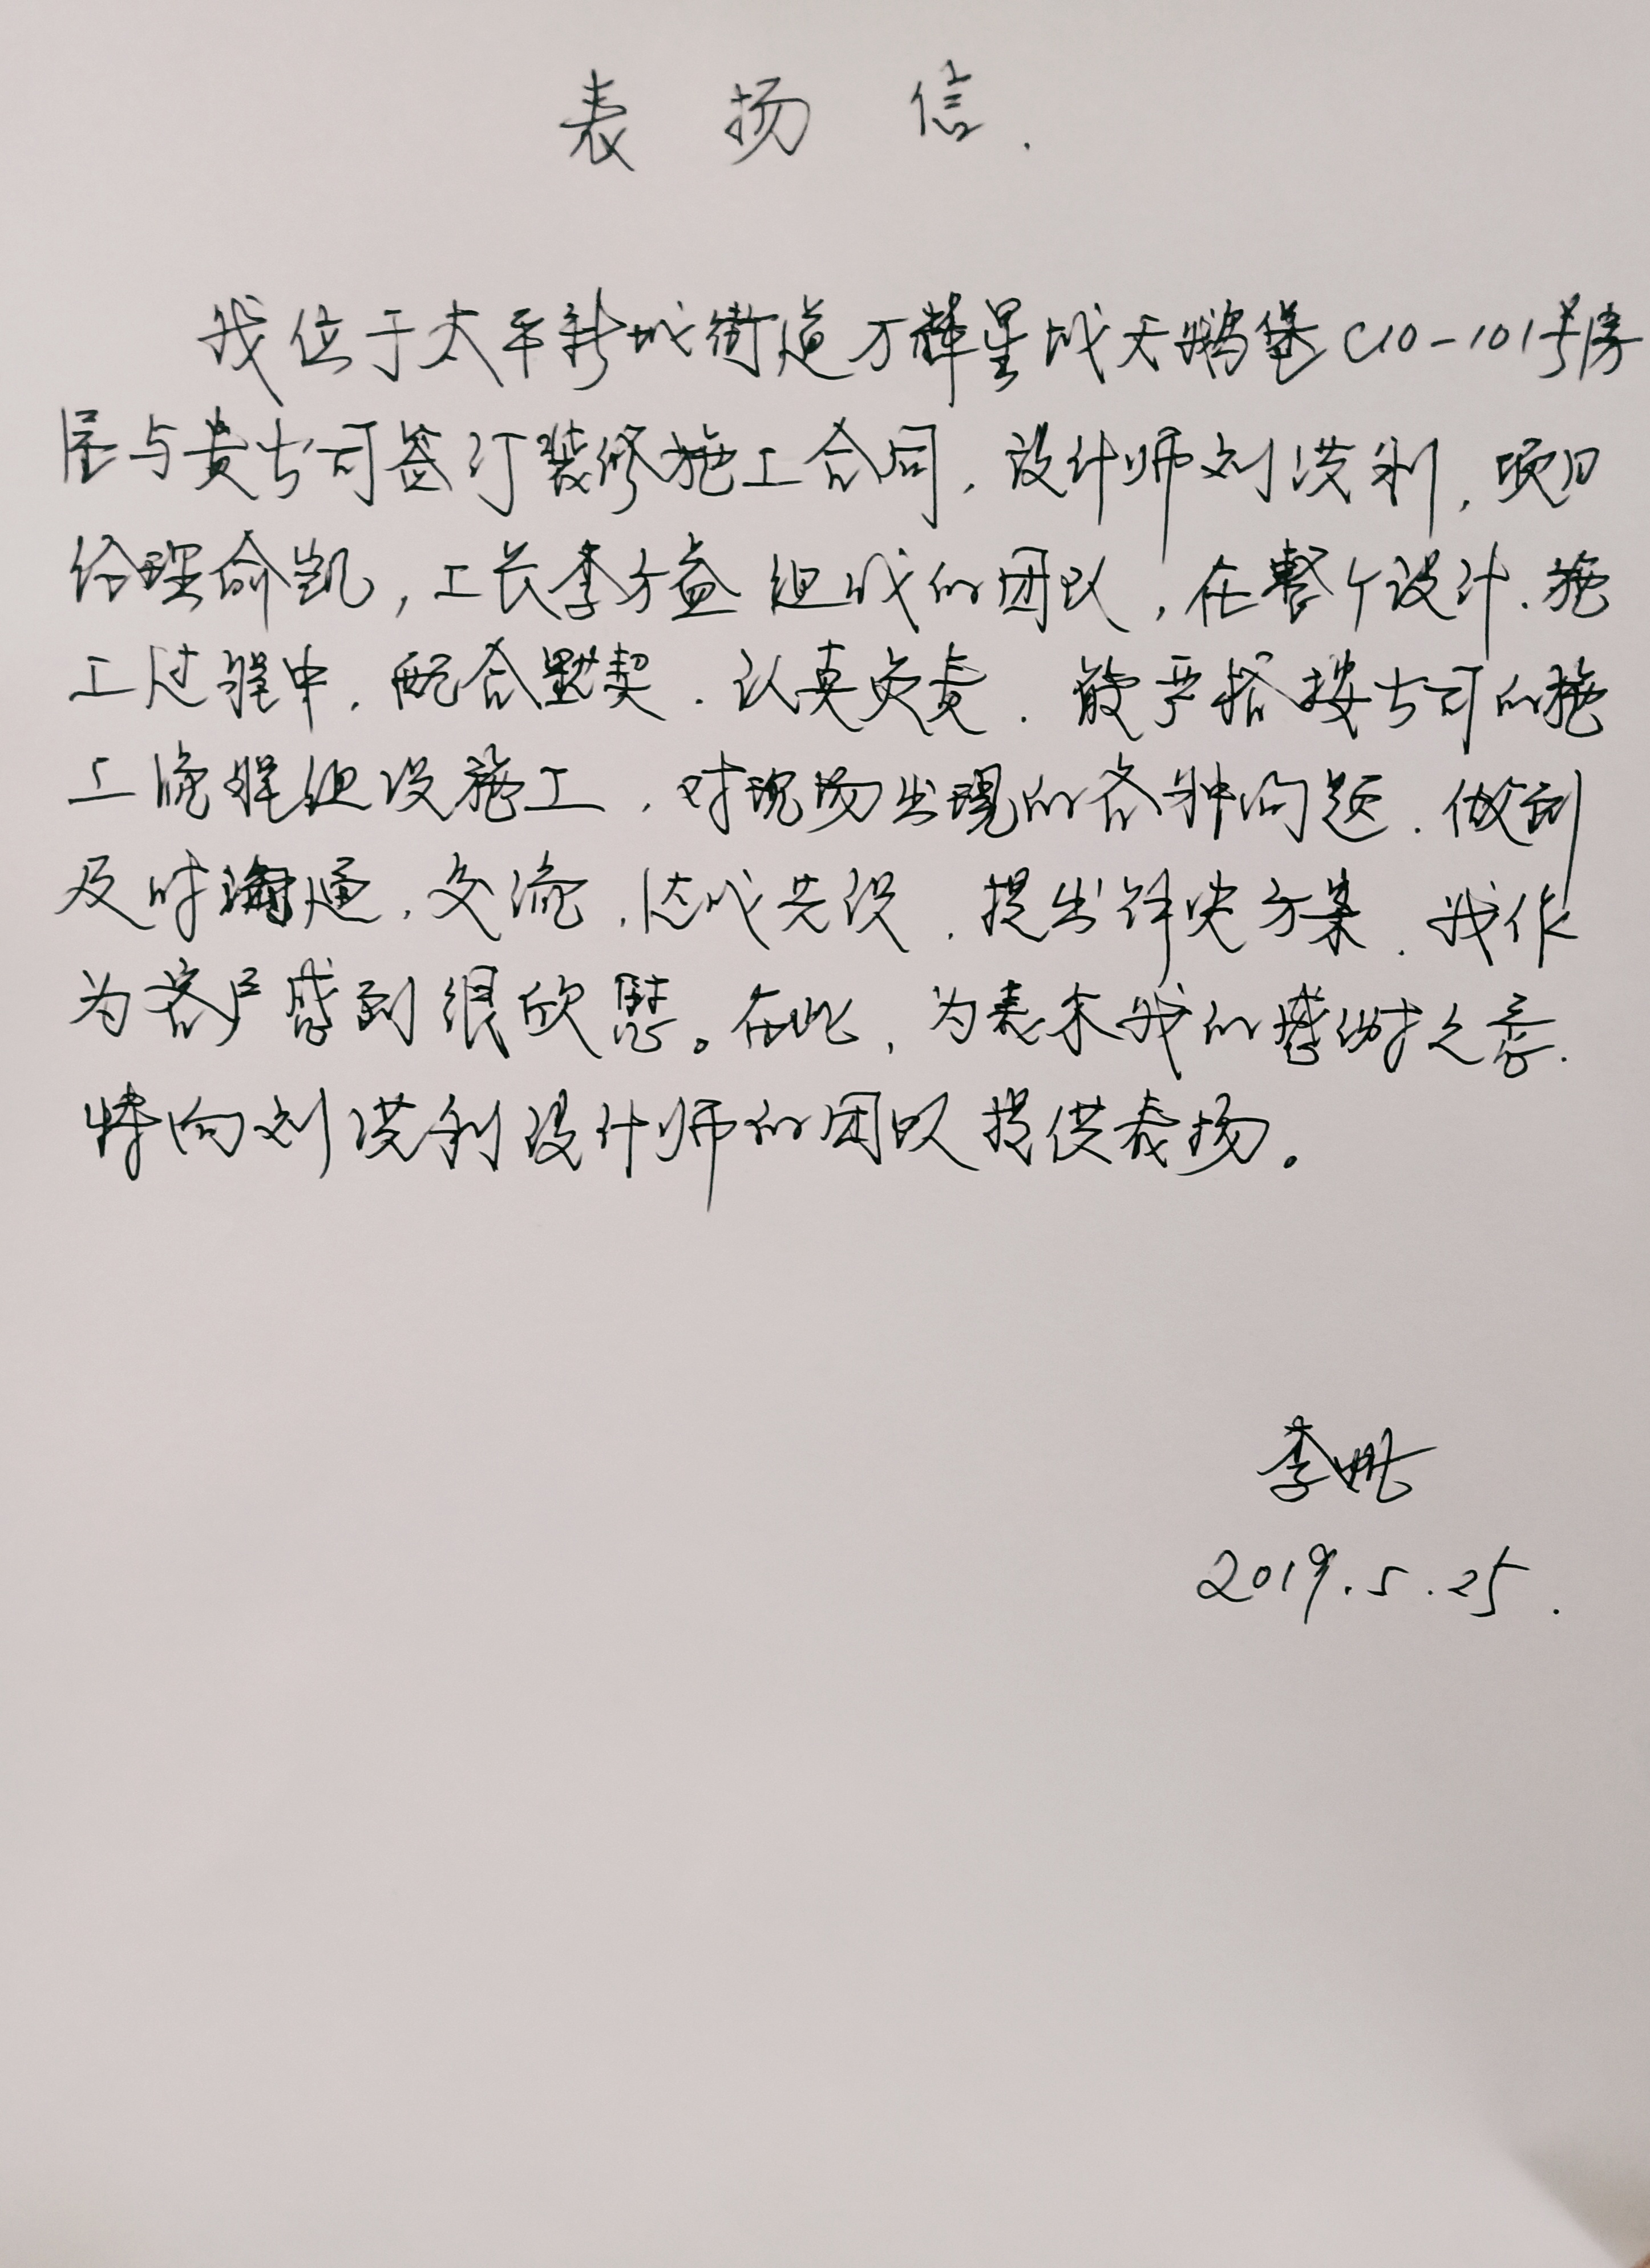 表扬信.
我位于太平新城街道万辉星城天鹅堡C10-101号房
屋与贵公司签订装修施工合同,设计师刘洪利,项目
经理俞凯,工长李方益组成的团队,在整个设计.施
工过程中,配合默契.认真负责.能严格按公司的施
工流程组设施工,对现场出现的各种问题.做到
及时沟通,交流,达成共识,提出解决方案.我作
为客户感到很欣慰。在此,为表示我的感谢之意.
特向刘洪利设计师的团队提供表扬。
李
2019.5.25.